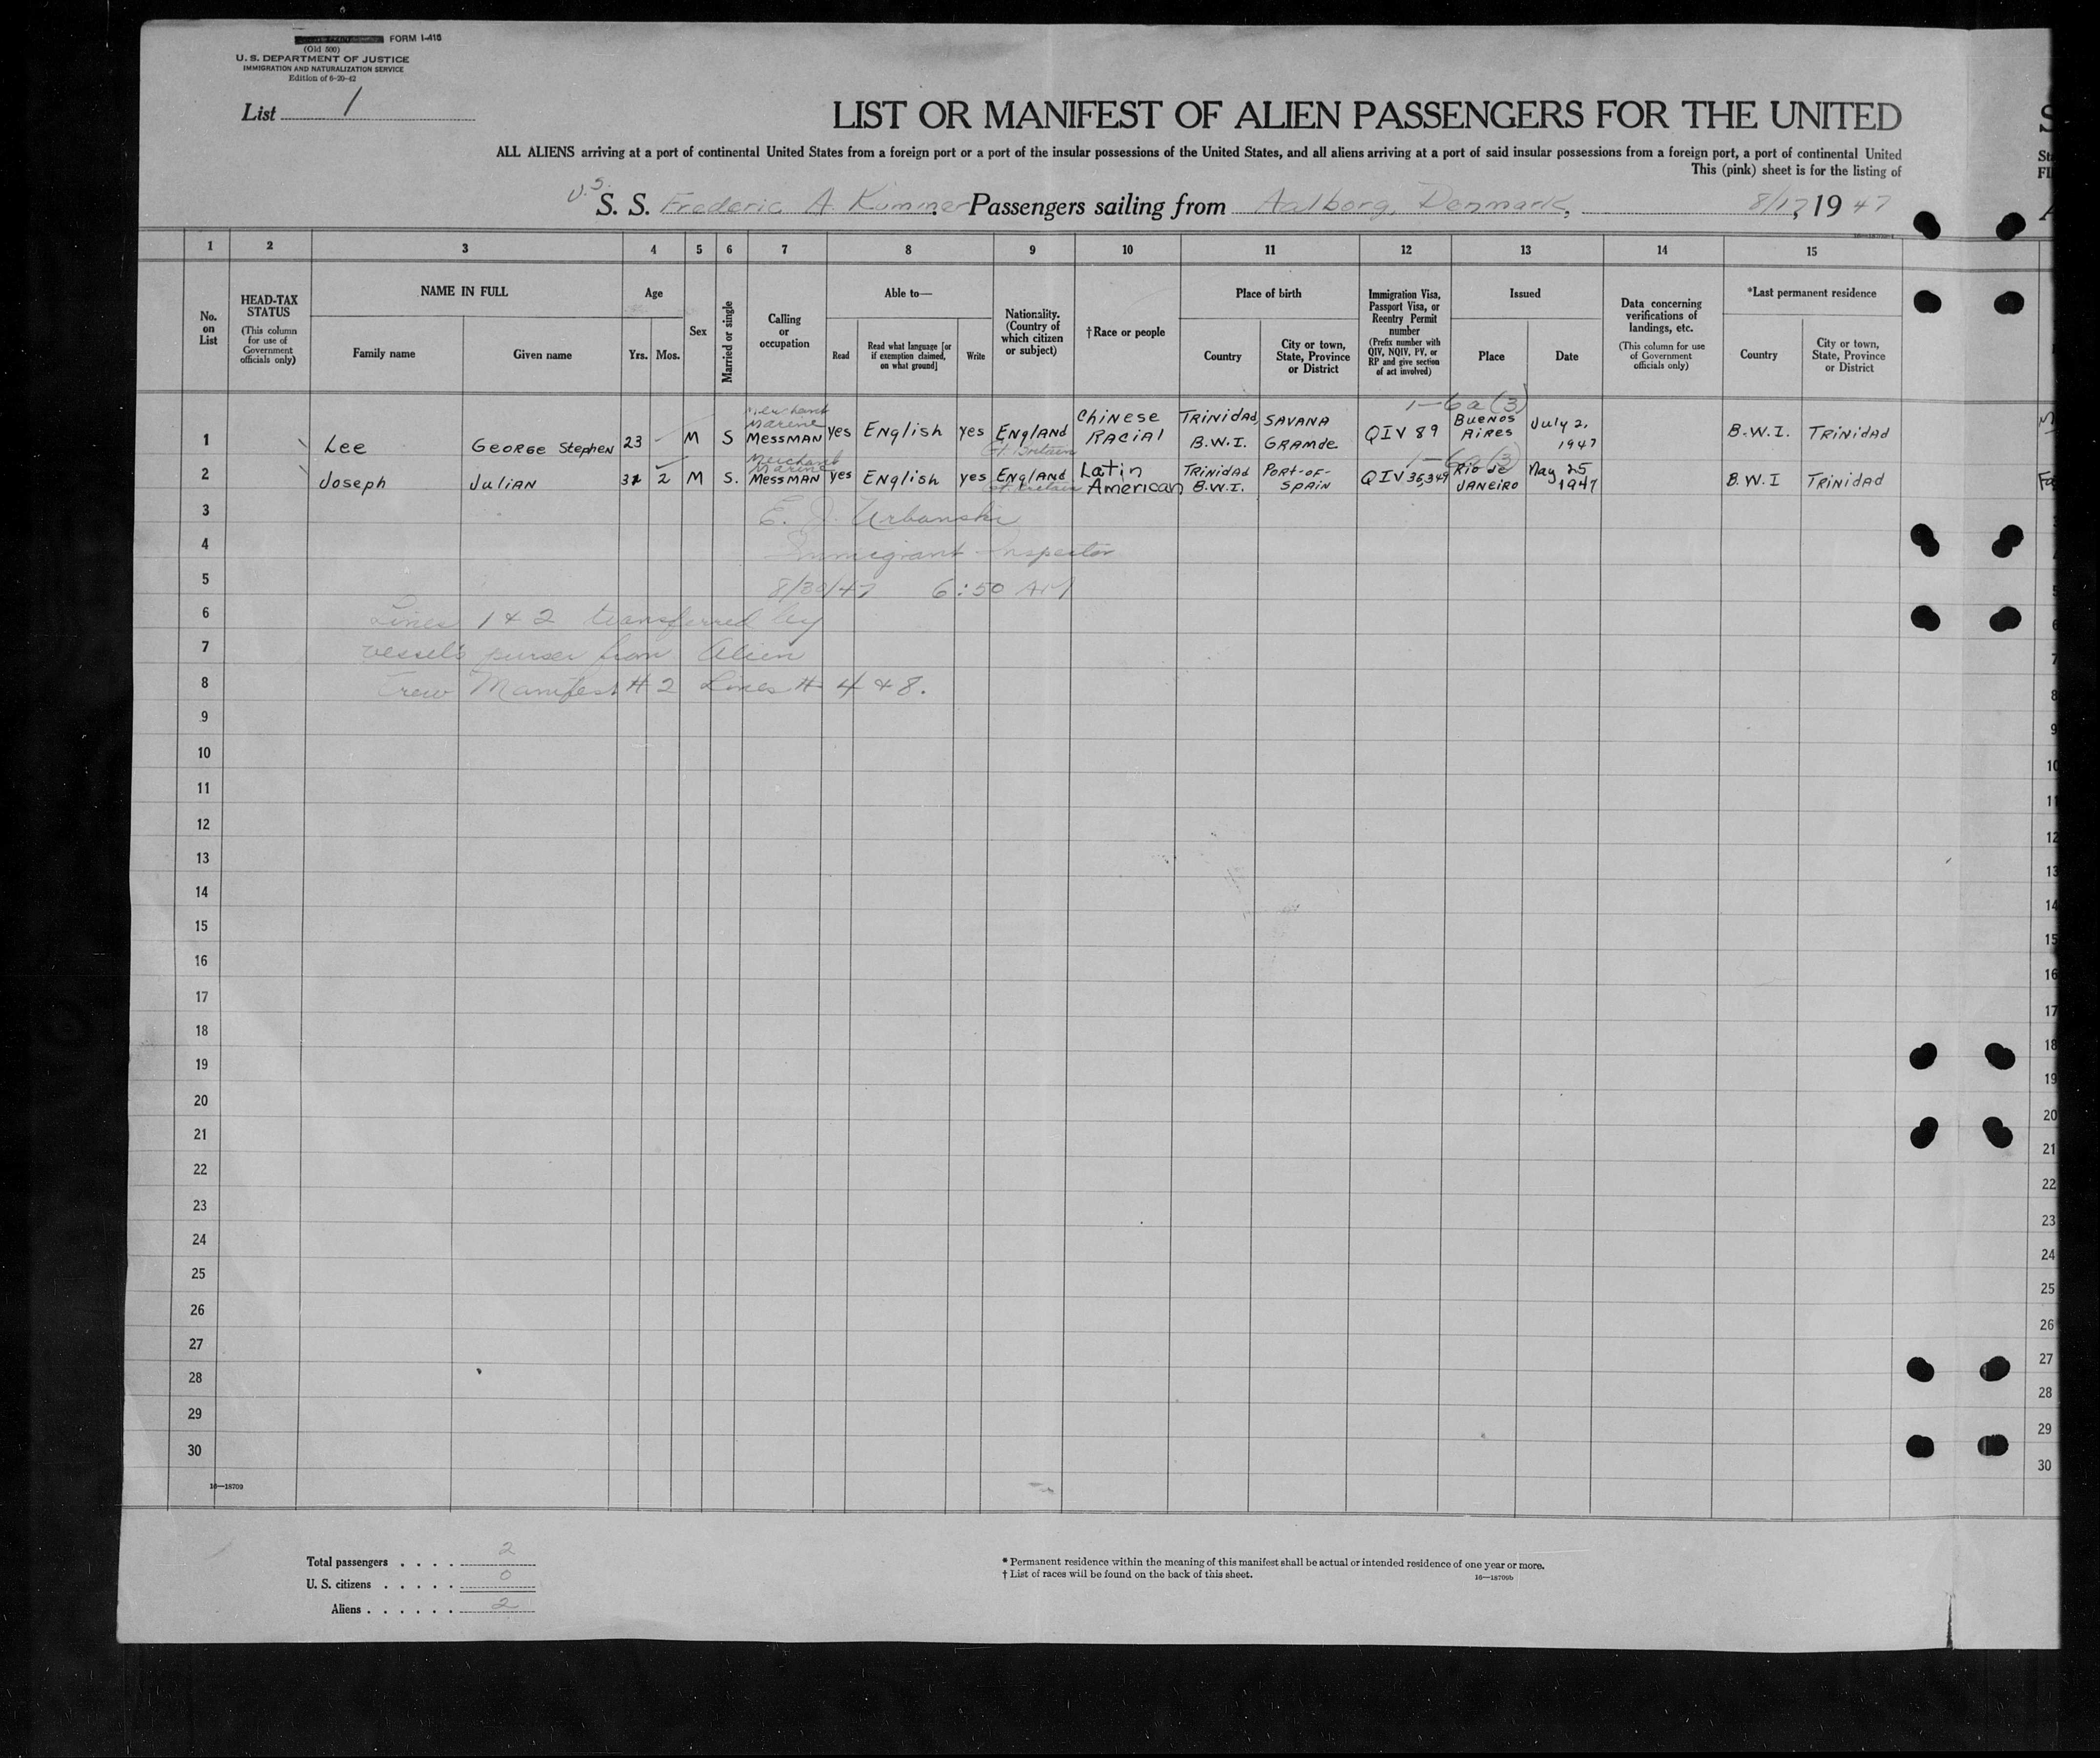 FORM I-415
(Old 500)
U. S. DEPARTMENT OF JUSTICE
IMMIGRATION AND NATURALIZATION SERVICE
Edition of 6-20-42
List 1
LIST OR MANIFEST OF ALIEN PASSENGERS FOR THE UNITED
ALL ALIENS arriving at a port of continental United States from a foreign port or a port of the insular possessions of the United States, and all aliens arriving at a port of said insular possessions from a foreign port, a port of continental United
This (pink) sheet is for the listing of
U.S. S. S. Frederic A. Kummer Passengers sailing from Aalborg, Denmark, 8/17, 1947
1 2 3 4 5 6 7 8 9 10 11 12 13 14 15
No. on List
HEAD-TAX STATUS
(This column for use of Government officials only)
NAME IN FULL
Family name
Given name
Age
Yrs.
Mos.
Sex
Married or single
Calling or occupation
Able to—
Read
Read what language [or if exemption claimed, on what ground]
Write
Nationality. (Country of which citizen or subject)
†Race or people
Place of birth
Country
City or town, State, Province or District
Immigration Visa, Passport Visa, or Reentry Permit number
(Prefix number with QIV, NQIV, PV, or RP and give section of act involved)
Issued
Place
Date
Data concerning verifications of landings, etc.
(This column for use of Government officials only)
*Last permanent residence
Country
City or town, State, Province or District
1 Lee George Stephen 23 M S Merchant Marine Messman yes English yes England Gt. Britain Chinese Racial Trinidad, B.W.I. Savana Gramde 1-6a(3) QIV 89 Buenos Aires July 2, 1947 B.W.I. Trinidad
2 Joseph Julian 2 M S. Merchant Marine Messman yes English yes England Gt. Britain Latin American Trinidad B.W.I. Port-of-Spain 1-6a(3) QIV 35,349 Rio de Janeiro May 25 1947 B.W.I Trinidad
3 E. J. Urbanski
4 Immigrant Inspector
5 8/30/47 6:50 AM
6 Lines 1 & 2 transferred by
7 vessel's purser from Alien
8 Crew Manifest # 2 Lines # 4 & 8.
9
10
11
12
13
14
15
16
17
18
19
20
21
22
23
24
25
26
27
28
29
30
16—18709
Total passengers . . . . 2
U. S. citizens . . . . . 0
Aliens . . . . . . 2
* Permanent residence within the meaning of this manifest shall be actual or intended residence of one year or more.
† List of races will be found on the back of this sheet.
16—18709b